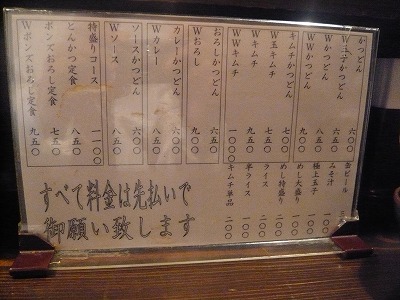 かつどん 六〇〇
W玉子かつどん 六五〇
Wかつどん 八五〇
WWかつどん 九〇〇
キムチかつどん 七〇〇
W玉キムチ
Wキムチ
WWキムチ 一〇〇〇
おろしかつどん
Wおろし 九〇〇
カレーかつどん 六〇〇
Wカレー 八五〇
ソースかつどん 六〇〇
Wソース 八五〇
特盛りコース 一一〇〇
とんかつ定食 八五〇
ポンズおろし定食 七五〇
Wポンズおろし定食 九五〇
缶ビール
みそ汁 一〇〇
極上玉子 一〇〇
めし大盛り 一〇〇
めし特盛り 二〇〇
ライス 二〇〇
半ライス 一〇〇
キムチ単品 二〇〇
すべて料金は先払いで
御願い致します